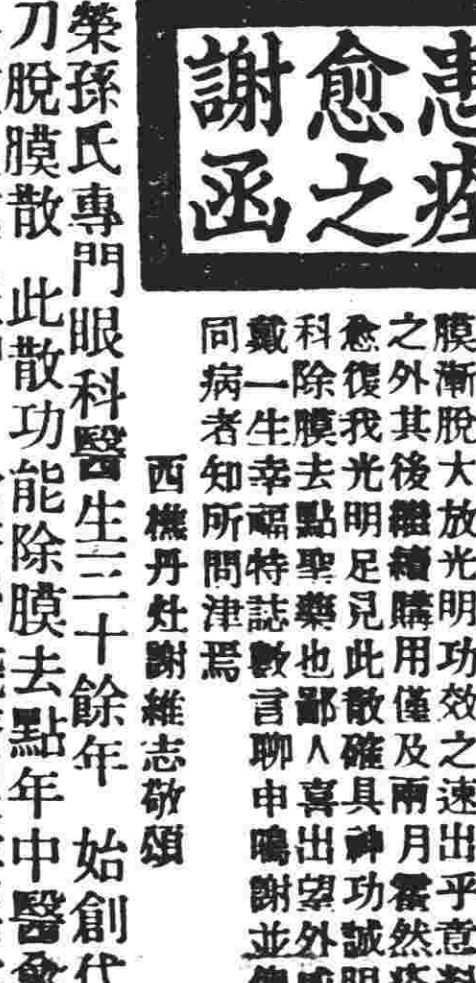 患痊
愈之
謝函
膜漸脫大放光明功效之速出乎意料
之外其後繼續購用僅及兩月霍然痊
愈復我光明足見此散確具神功誠眼
科除膜去點聖藥也鄙人喜出望外感
戴一生幸福特誌數言聊申鳴謝並
同病者知所問津焉
西樵丹灶謝維志敬頌
榮孫氏專門眼科醫生三十餘年 始創代
刀脫膜散 此散功能除膜去點年中醫